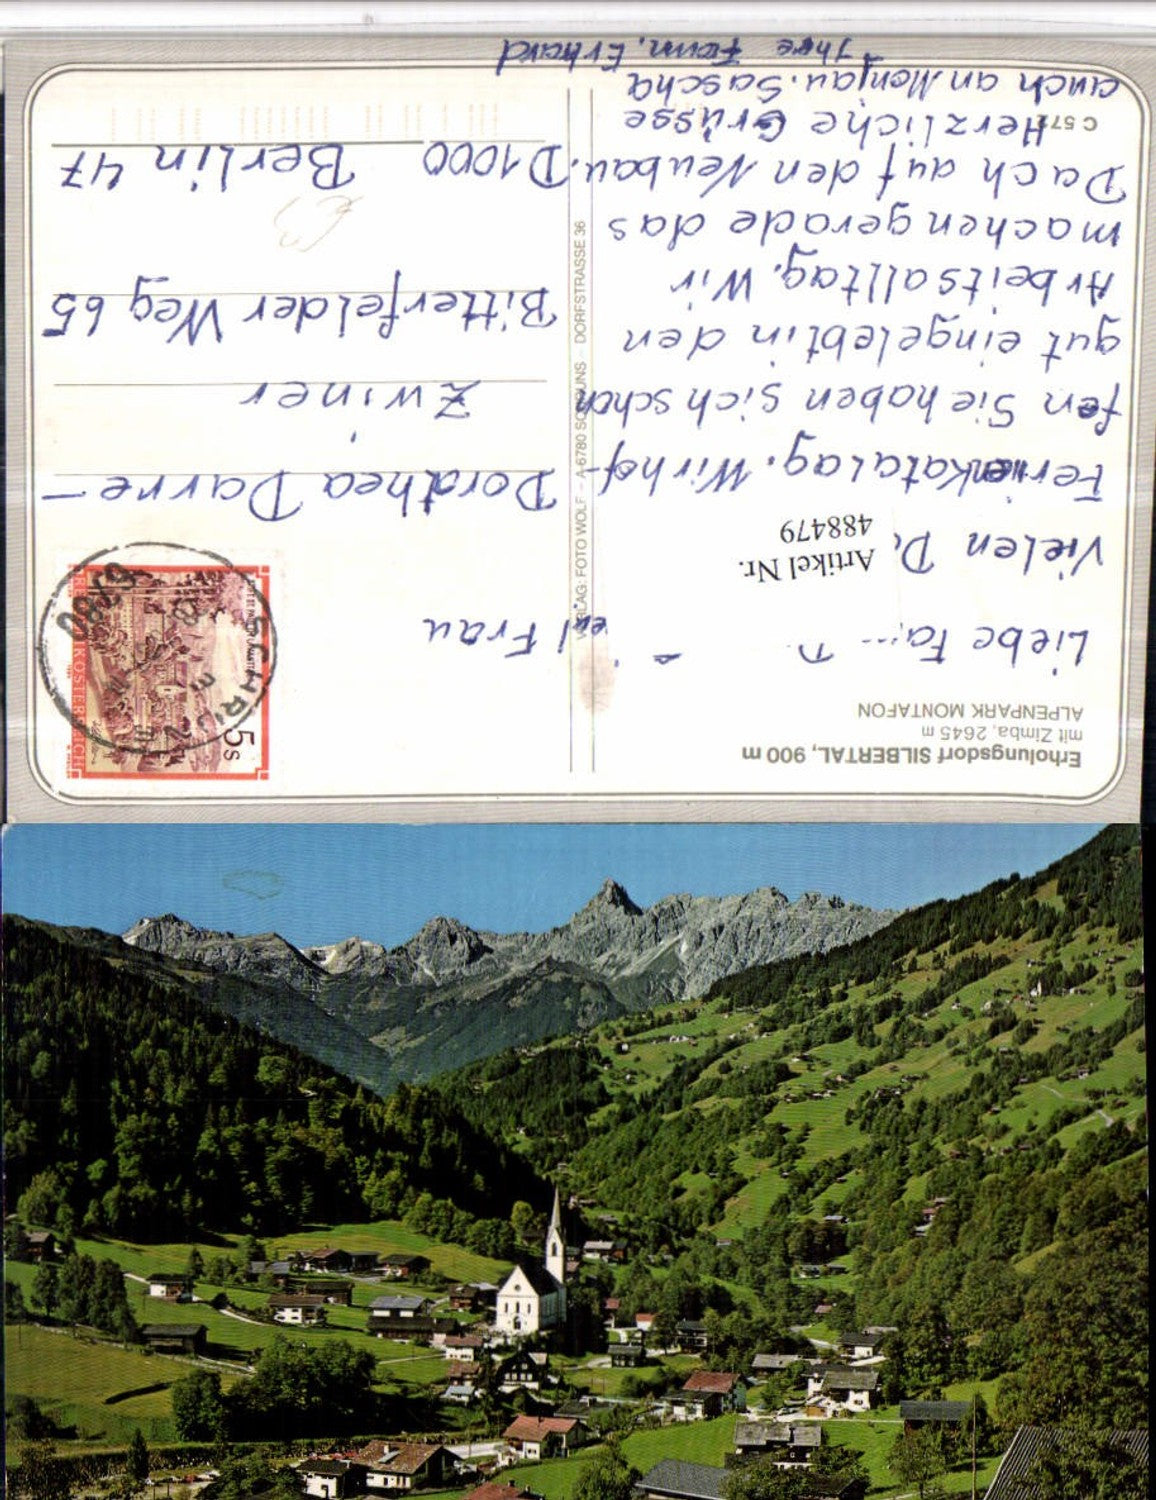 Erholungsdorf SILBERTAL, 900 m
mit Zimba, 2645 m
ALPENPARK MONTAFON
Liebe
Vielen
Artikel Nr.
488479
Ferienkatalag. Wir hof-
fen Sie haben sich schon
gut eingelebt in den
Arbeitsalltag. Wir
machen gerade das
Dach auf den Neubau.
Herzliche Grüsse
auch an Monja u. Sascha
Ihre Fam. Erhard
C 572
VERLAG: FOTO WOLF - A-6780 SCHRUNS - DORFSTRASSE 36
5s
REPUBLIK ÖSTERREICH
SCHRUNS
6780
Frau
Dorothea Darre-
Zwiner
Bitterfelder Weg 65
D1000 Berlin 47